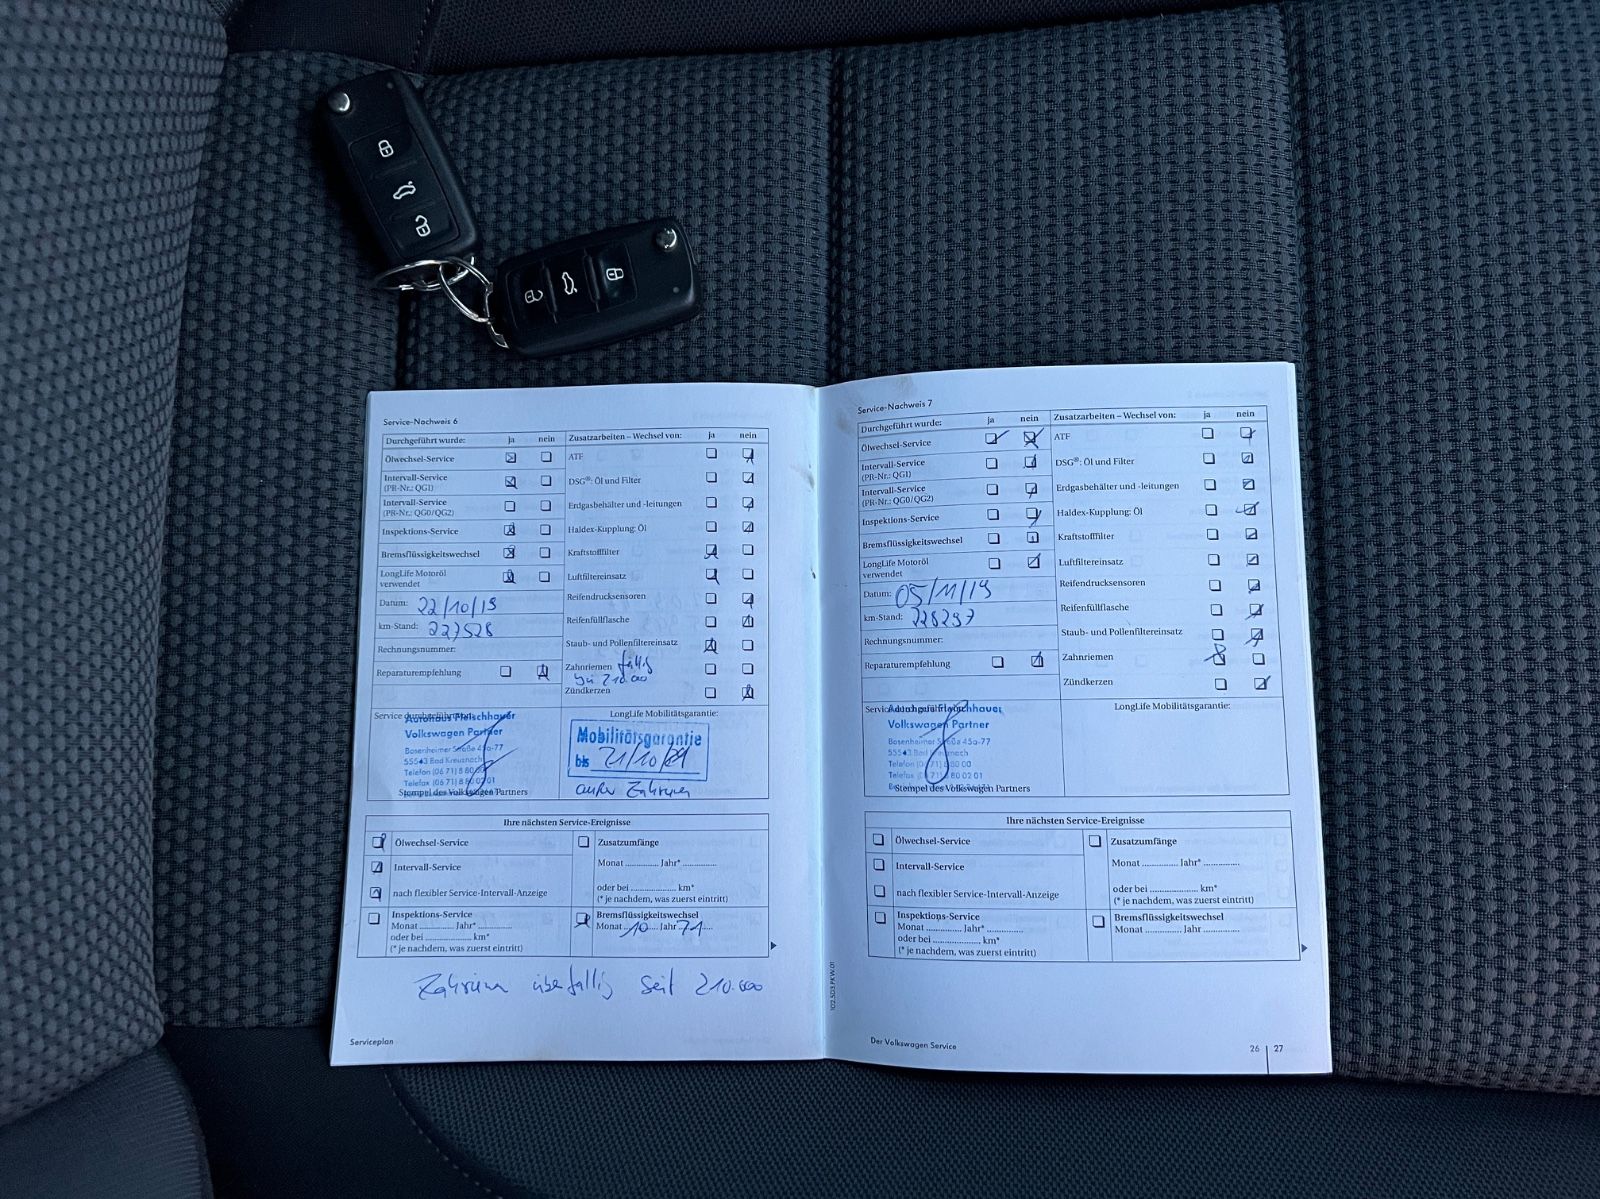 Service-Nachweis 6
Durchgeführt wurde: ja nein
Ölwechsel-Service
Intervall-Service
(PR-Nr.: QG1)
Intervall-Service
(PR-Nr.: QG0/QG2)
Inspektions-Service
Bremsflüssigkeitswechsel
LongLife Motoröl
verwendet
Datum: 22/10/19
km-Stand: 227528
Rechnungsnummer:
Reparaturempfehlung
Zusatzarbeiten – Wechsel von: ja nein
ATF
DSG®: Öl und Filter
Erdgasbehälter und -leitungen
Haldex-Kupplung: Öl
Kraftstofffilter
Luftfiltereinsatz
Reifendrucksensoren
Reifenfüllflasche
Staub- und Pollenfiltereinsatz
Zahnriemen fällig
bei 210.000
Zündkerzen
Service durchgeführt
Autohaus Fleischhauer
Volkswagen Partner
Bosenheimer Straße 45a-77
55543 Bad Kreuznach
Telefon (06 71) 8 80 00
Telefax (06 71) 8 80 02 01
Stempel des Volkswagen Partners
LongLife Mobilitätsgarantie:
Mobilitätsgarantie
bis 21/10/21
außer Zahnriemen
Ihre nächsten Service-Ereignisse
Ölwechsel-Service
Intervall-Service
nach flexibler Service-Intervall-Anzeige
Inspektions-Service
Monat ............. Jahr* .............
oder bei ..................... km*
(* je nachdem, was zuerst eintritt)
Zusatzumfänge
Monat ............. Jahr* .............
oder bei ..................... km*
(* je nachdem, was zuerst eintritt)
Bremsflüssigkeitswechsel
Monat 10 Jahr 21
Zahnriemen überfällig seit 210.000
Serviceplan
Service-Nachweis 7
Durchgeführt wurde: ja nein
Ölwechsel-Service
Intervall-Service
(PR-Nr.: QG1)
Intervall-Service
(PR-Nr.: QG0/QG2)
Inspektions-Service
Bremsflüssigkeitswechsel
LongLife Motoröl
verwendet
Datum: 05/11/19
km-Stand: 228297
Rechnungsnummer:
Reparaturempfehlung
Zusatzarbeiten – Wechsel von: ja nein
ATF
DSG®: Öl und Filter
Erdgasbehälter und -leitungen
Haldex-Kupplung: Öl
Kraftstofffilter
Luftfiltereinsatz
Reifendrucksensoren
Reifenfüllflasche
Staub- und Pollenfiltereinsatz
Zahnriemen
Zündkerzen
Service durchgeführt
Autohaus Fleischhauer
Volkswagen Partner
Bosenheimer Straße 45a-77
55543 Bad Kreuznach
Telefon (06 71) 8 80 00
Telefax (06 71) 8 80 02 01
Stempel des Volkswagen Partners
LongLife Mobilitätsgarantie:
Ihre nächsten Service-Ereignisse
Ölwechsel-Service
Intervall-Service
nach flexibler Service-Intervall-Anzeige
Inspektions-Service
Monat ............. Jahr* .............
oder bei ..................... km*
(* je nachdem, was zuerst eintritt)
Zusatzumfänge
Monat ............. Jahr* .............
oder bei ..................... km*
(* je nachdem, was zuerst eintritt)
Bremsflüssigkeitswechsel
Monat ............. Jahr .............
102.5D3.PKW.01
Der Volkswagen Service
26 | 27